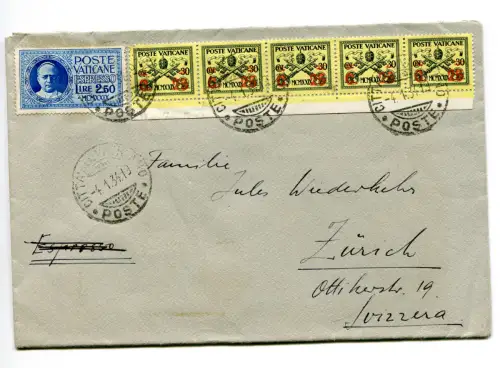 POSTE VATICANE
ESPRESSO
LIRE 2,50
MCMXXIX
POSTE VATICANE
30
MCMXXIX
POSTE VATICANE
30
MCMXXIX
POSTE VATICANE
30
MCMXXIX
POSTE VATICANE
30
MCMXXIX
POSTE VATICANE
30
MCMXXIX
POSTE
POSTE
POSTE
-4.1.34.13
POSTE
Familie
Jules Wiederkehr
Espresso
Zürich
Ottikerstr. 19
Svizzera